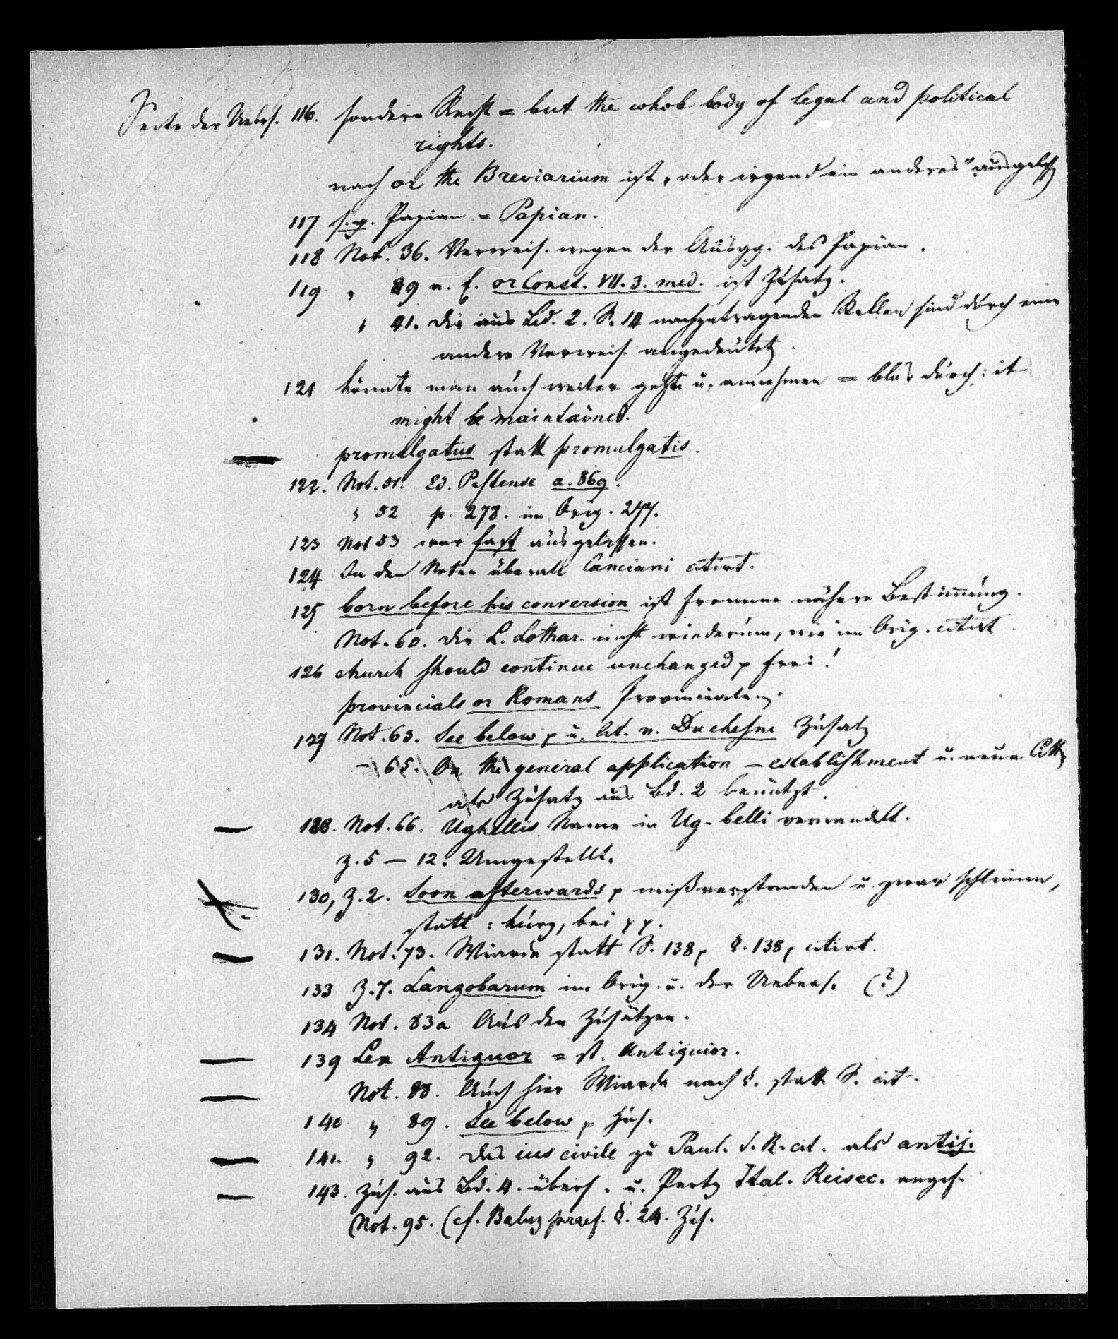 Seite der Uebers. 116. sondern Recht = but the whole body of legal and political
rights.
nach or the Breviarium ist, oder irgend ein anderes" ausgelass
117 s. g. Papian = Papian.
118 Not. 36. Verweis. wegen der Ausgg. des Papian.
119 " 39 u. f. or Const. VII. 3. med. ist Zusatz.
" 41. Die aus Bd. 2. S. 14 nachzutragenden Stellen sind durch eine
andere Verweis. angedeutet.
121 könnte man auch weiter gehn u. annehmen = blos durch: it
might be maintained.
promulgatus statt promulgatis.
122. Not. 51. Ed. Pestense a. 869.
" 52 p. 278. im Orig. 277.
123 Not 53 war fast ausgelassen.
124 In den Noten überall Canciani citirt.
125 born before his conversion ist fromme nähere Bestimmung.
Not. 60. Die L. Lothar. nicht wiederum, wie im Orig. citirt
126 church should continue unchanged, frei!
provincials or Romans Provincialen.
127 Not. 63. See below, u. Cit. v. Duchesne Zusatz
– 65. On the general application – establishment u. neue Citt
als Zusatz aus Bd. 2 benützt.
128. Not. 66. Ughellis Name in Ug- belli verwandelt.
Z. 5 – 12. Umgestellt.
130, Z. 2. Soon afterwards, mißverstanden u. zwar schlimm,
statt: kurz, bei
131. Not. 73. Wiarda statt S. 138, §. 138, citirt.
133 Z. 7. Langobarum im Orig. u. der Uebers. (?)
134 Not. 83a Aus den Zusätzen.
139 Lex Antiquor = st. Antiquior.
Not. 88. Auch hier Wiarda nach §. statt S. cit.
140 " 89. See below, Zus.
141. " 92. das ius civile zu Paul. S. R. cit. als antij.
143. Zus. aus Bd. 4. übers. u. Pertz Ital. Reise angef.
Not. 95. (cf. Baluz praef. §. 24. Zus.